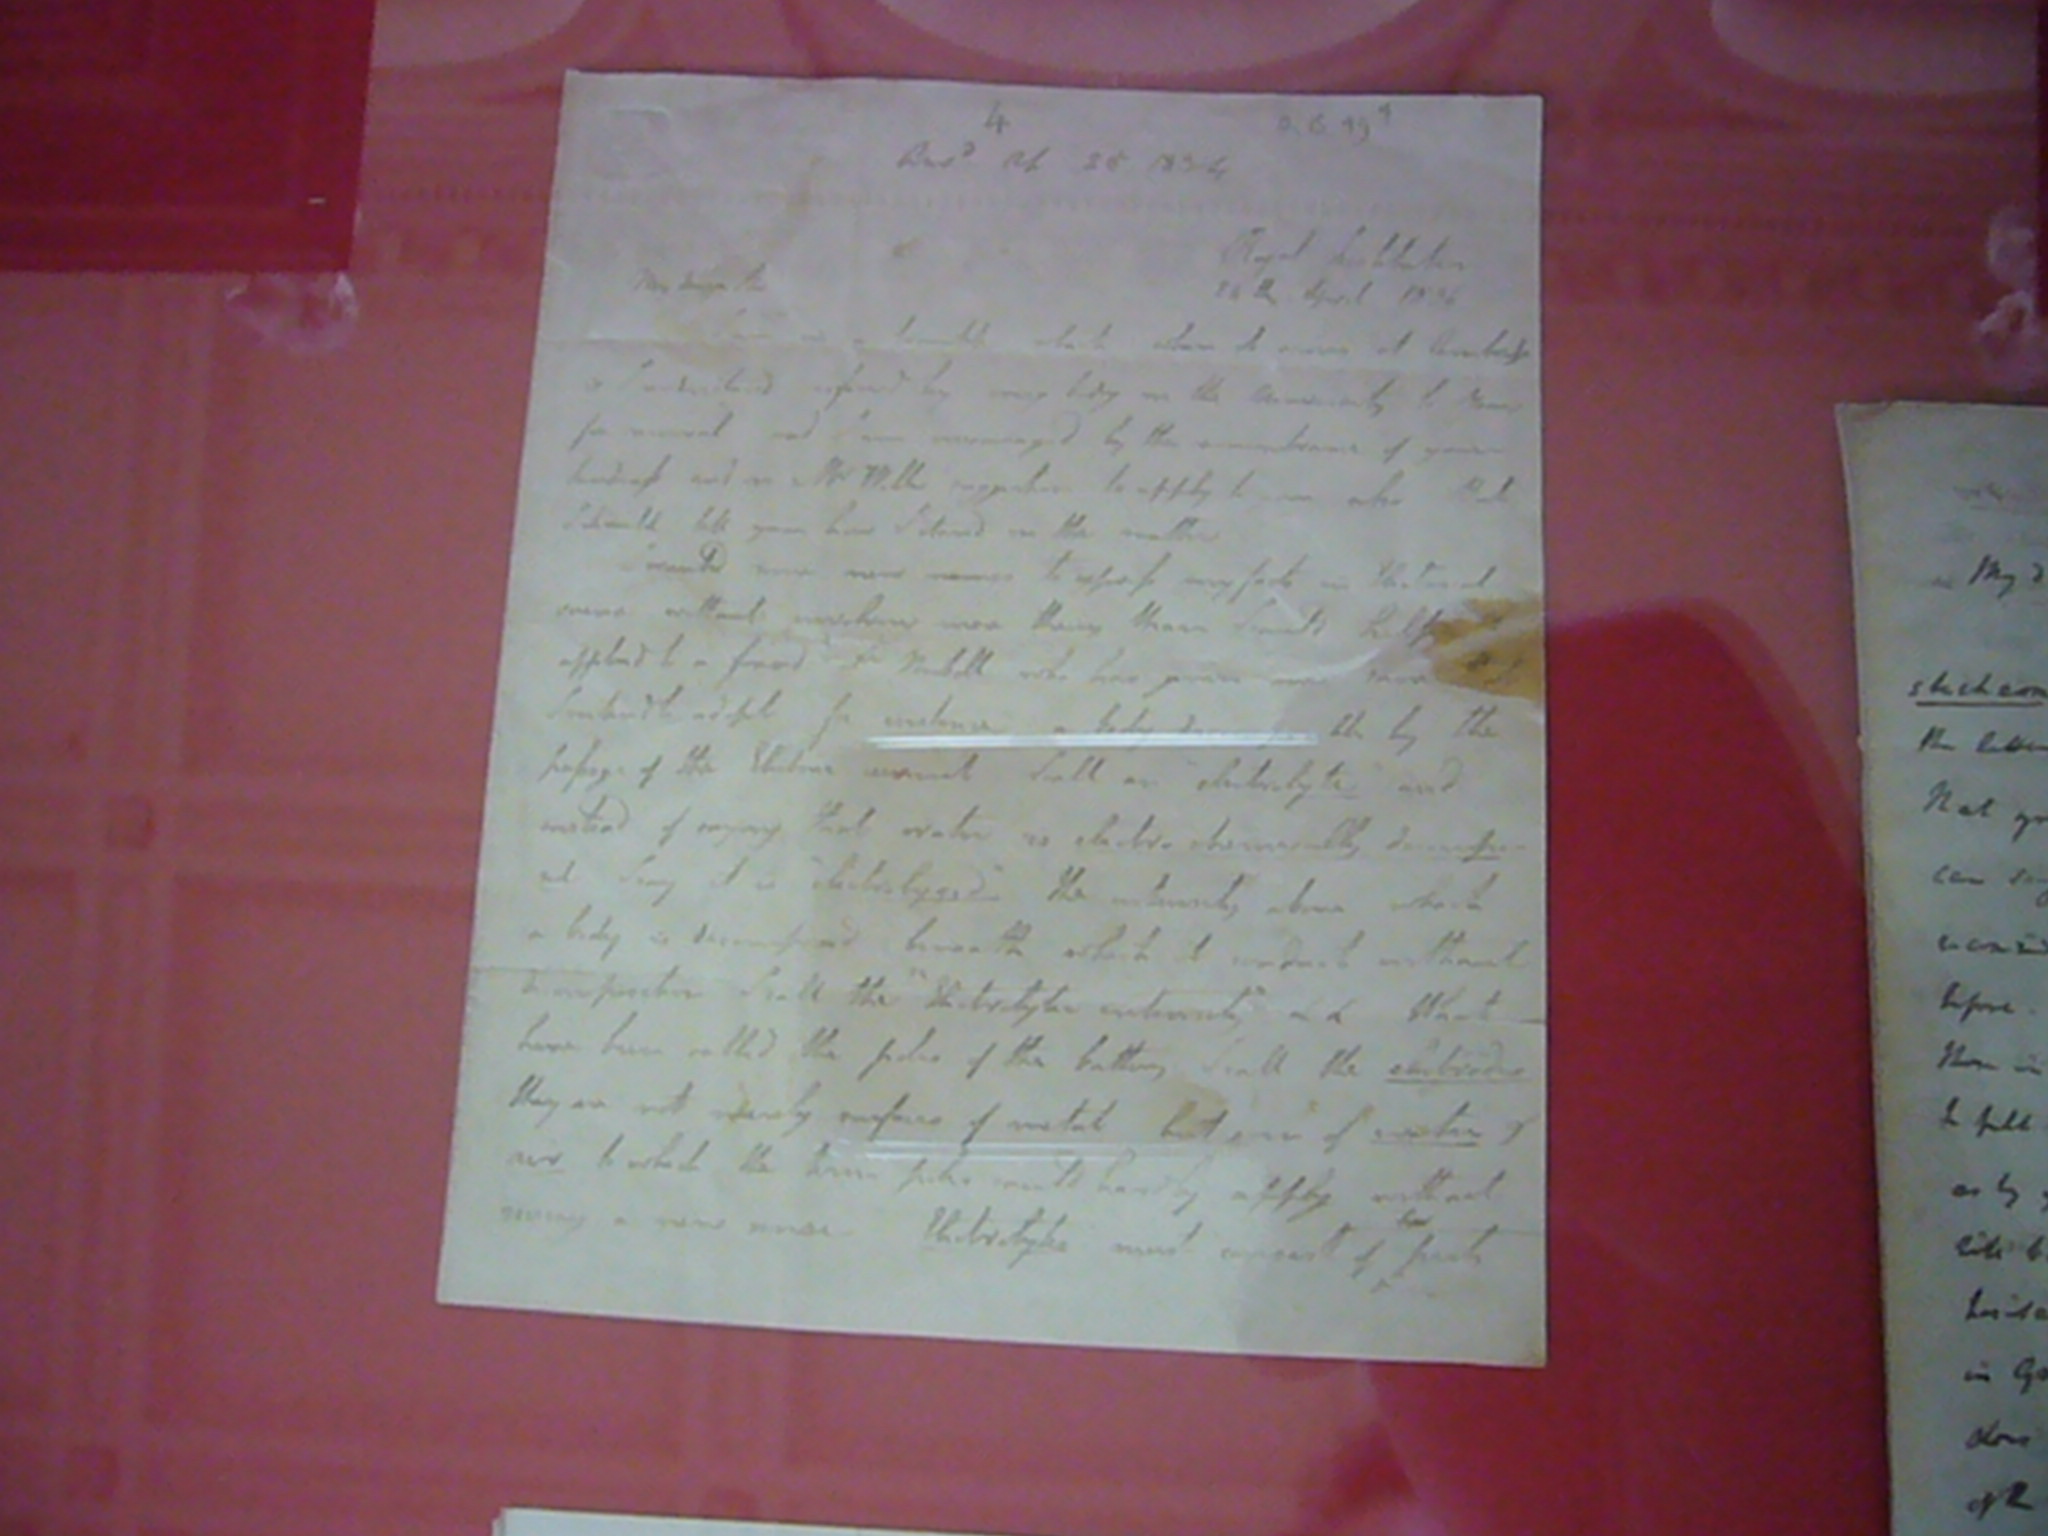 4
Ansd Ap 25 1834
Royal Institution
24th April 1834
My dear Sir
I am in a trouble which when it occurs at Cambridge
is I understand referred by every body in the University to you
for removal and I am encouraged by the remembrance of your
kindness and on Mr Willis suggestion to apply to you also But
I should tell you how I stand in the matter
I wanted some new names to express my facts in Electrical
science without involving more theory than I could help
applied to a friend Dr Nicholl who has given me some that
I intend to adopt for instance a body decomposable by the
passage of the Electric current I call an "electrolyte" and
instead of saying that water is electro chemically decompos
ed I say it is "electrolyzed" the intensity above which
a body is decomposed beneath which it conducts without
decomposition I call the "Electrolyte intensity" &c &c What
have been called the poles of the battery I call the electrodes
they are not merely surfaces of metal but even of water &
air to which the term poles could hardly apply without
receiving a new sense Electrolytes must consist of two parts
My d
the letter
Not
can say
before